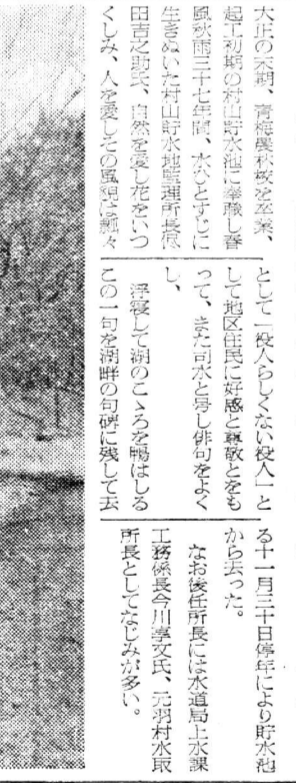 大正の末期、青梅農林校を卒業、
起工初期の村山貯水池に奉職し春
風秋雨三十七年間、水ひとすじに
生きぬいた村山貯水池監理所長
田吉之助氏、自然を愛し花をいつ
くしみ、人を愛しその風貌は飄々
として「役人らしくない役人」と
して地区住民に好感と尊敬とをも
って、また司水と号し俳句をよく
し、
浮寝して湖のこゝろを鴨はしる
この一句を湖畔の句碑に残して去
る十一月三十日停年により貯水池
から去った。
なお後任所長には水道局上水課
工務係長今川淳文氏、元羽村水取
所長としてなじみが多い。